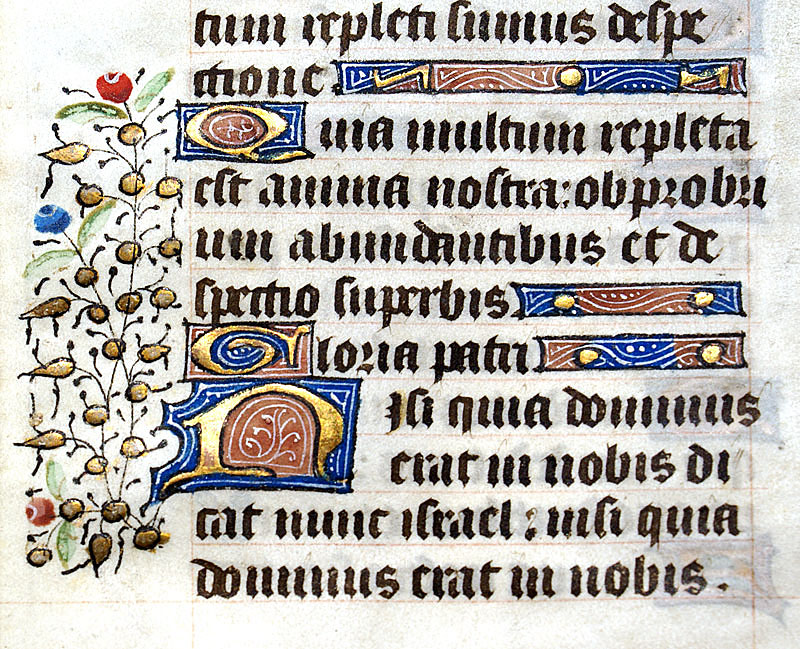 tum repleti sumus despe
ctione.
Quia multum repleta
est anima nostra: obprobri
um abundantibus et de
spectio superbis.
Gloria patri
Nisi quia dominus
erat in nobis di
cat nunc israel : nisi quia
dominus erat in nobis.